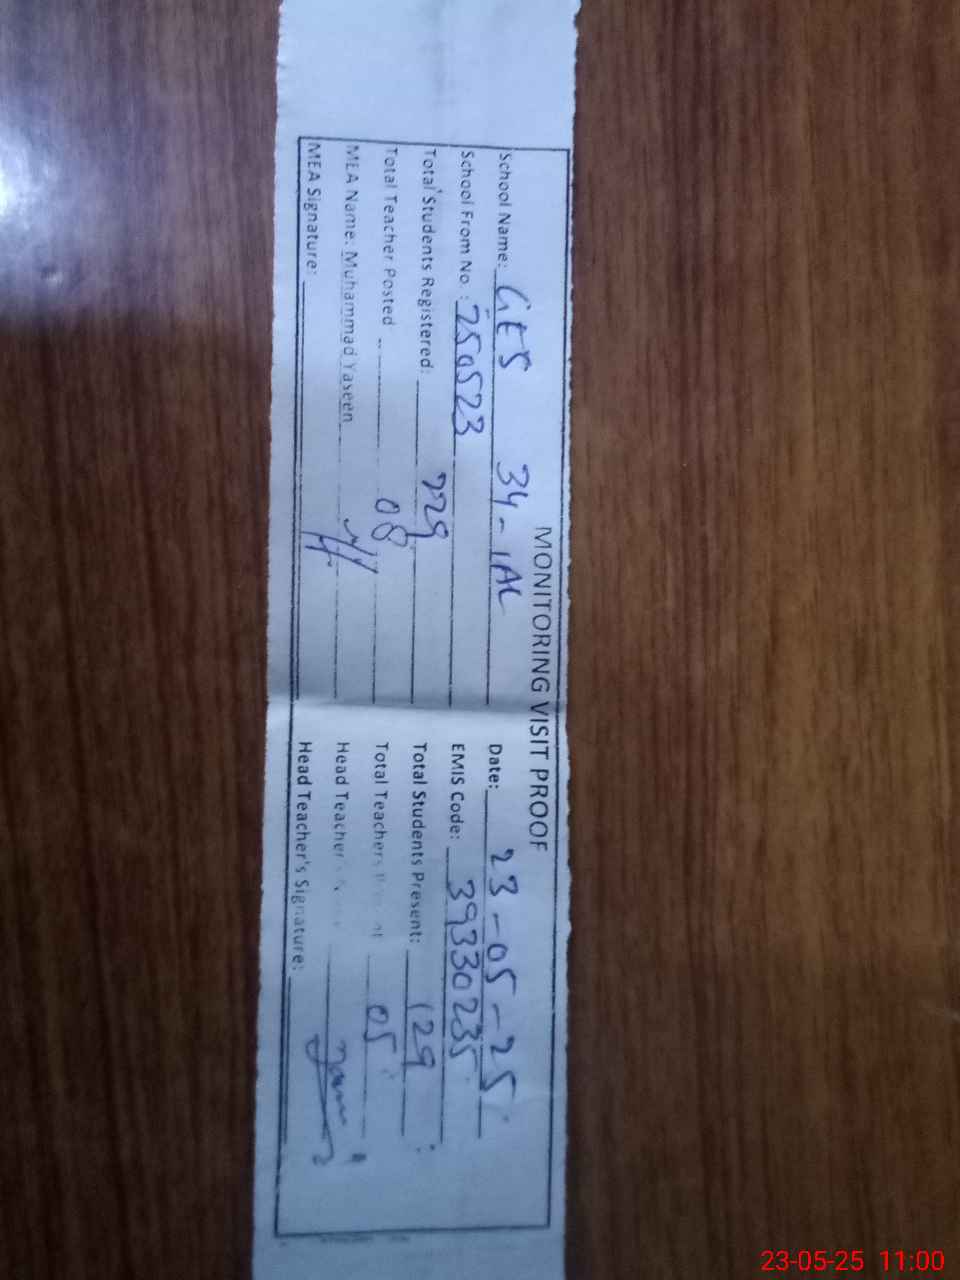 MONITORING VISIT PROOF
School Name: GES 34-1AL Date: 23-05-25
School From No.: 250523 EMIS Code: 39330235
Total Students Registered: 229 Total Students Present: 129
Total Teacher Posted 08 Total Teachers 05
MEA Name: Muhammad Yaseen Head Teacher
MEA Signature: Head Teacher's Signature:
23-05-25 11:00